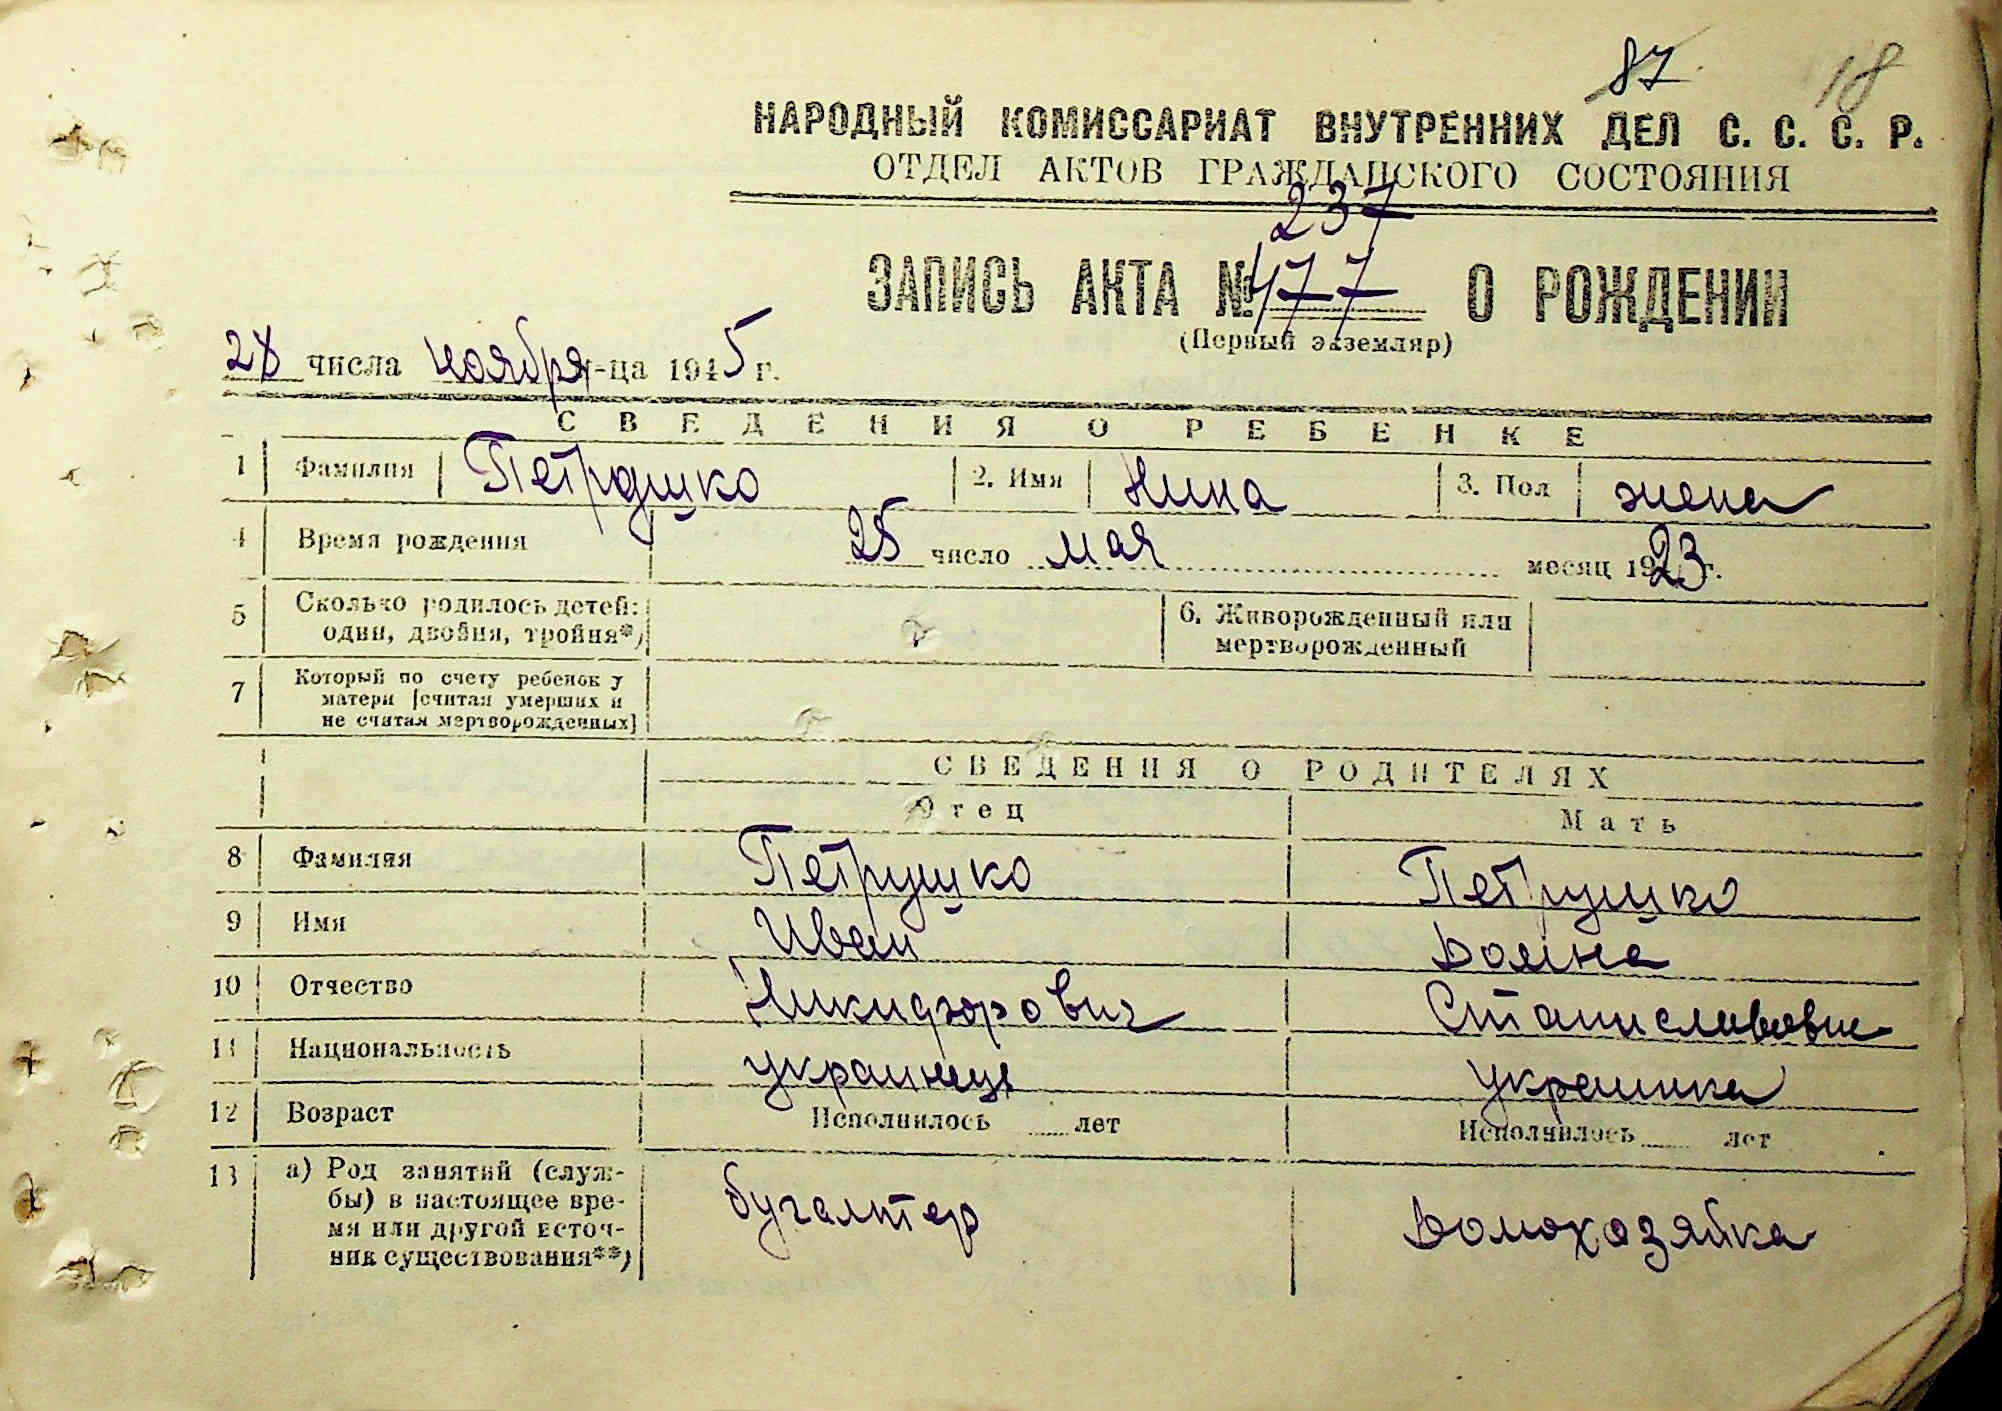 87 18
НАРОДНЫЙ КОМИССАРИАТ ВНУТРЕННИХ ДЕЛ С. С. С. Р.
ОТДЕЛ АКТОВ ГРАЖДАНСКОГО СОСТОЯНИЯ
237
ЗАПИСЬ АКТА № 477 О РОЖДЕНИИ
(Первый экземляр)
28 числа ноября м-ца 1945 г.
СВЕДЕНИЯ О РЕБЕНКЕ
1 Фамилия Петрушко 2. Имя Нина 3. Пол жена
4 Время рождения 25 число мая месяц 1923 г.
5 Сколько родилось детей: 6. Живорожденный или
один, двойня, тройня*) мертворожденный
7 Который по счету ребенок у
матери [считая умерших и
не считая мертворожденных]
СВЕДЕНИЯ О РОДИТЕЛЯХ
Отец Мать
8 Фамилия Петрушко Петрушко
9 Имя Иван Домна
10 Отчество Никифорович Станиславовн
11 Национальность украинец украинка
12 Возраст Исполнилось лет Исполнилось лет
13 а) Род занятий (служ-
бы) в настоящее вре- бугалтер домохозяйка
мя или другой источ-
ник существования**)